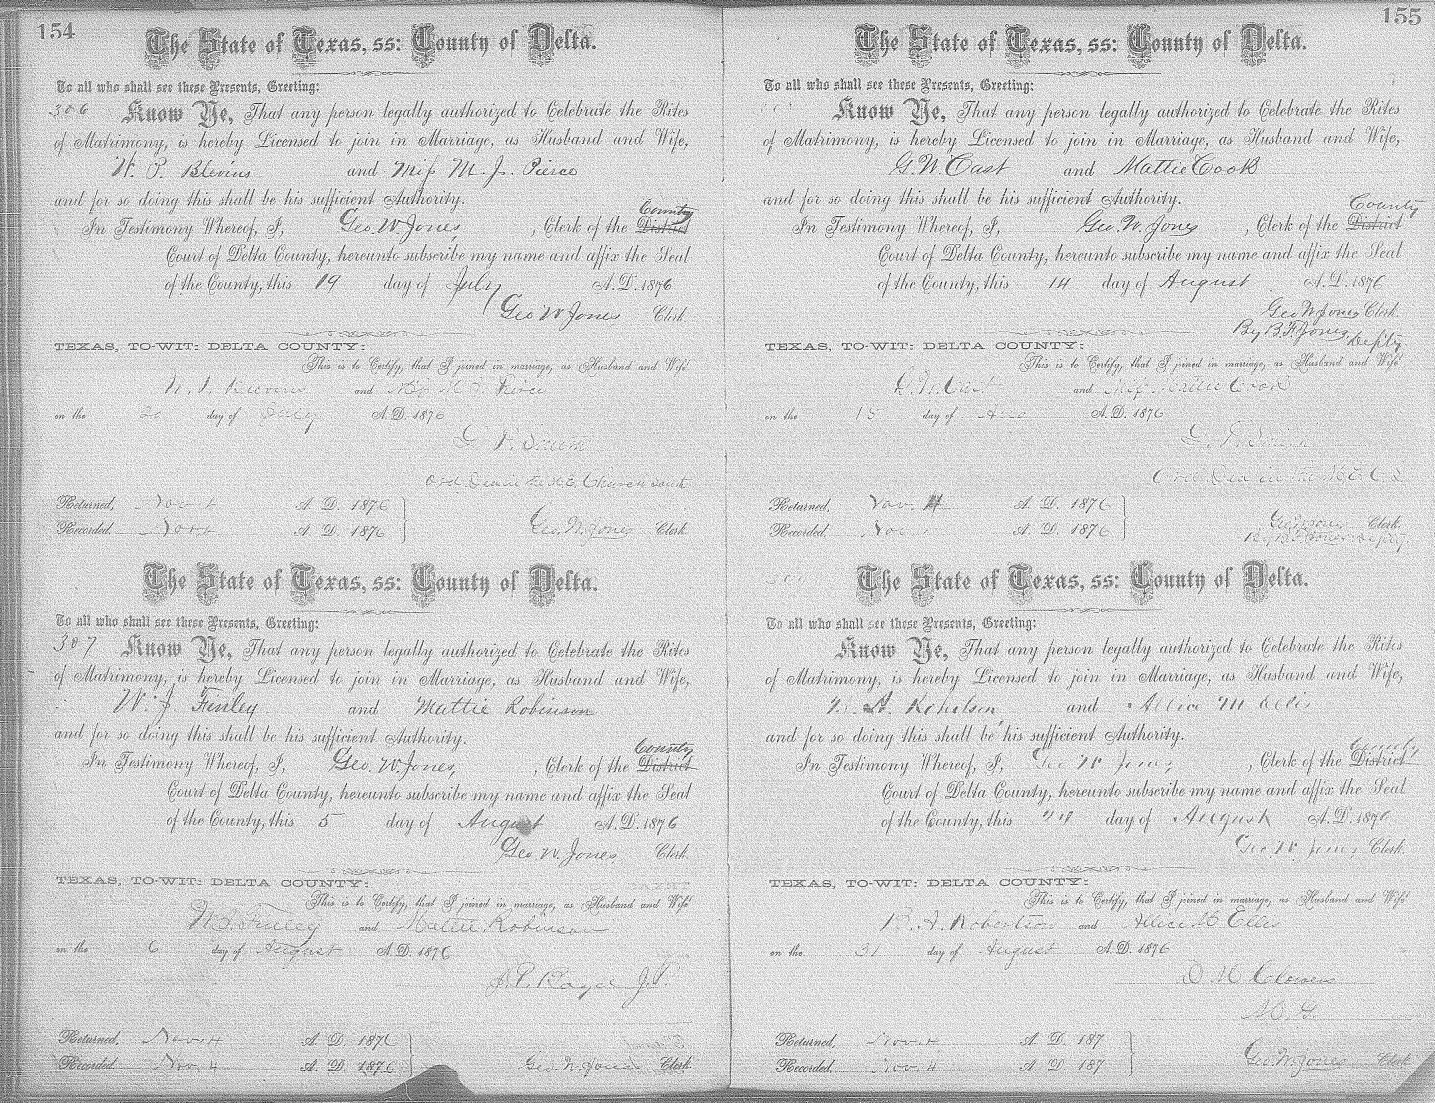 154
The State of Texas, ss: County of Delta.
To all who shall see these Presents, Greeting:
306 Know Ye, That any person legally authorized to Celebrate the Rites
of Matrimony, is hereby Licensed to join in Marriage, as Husband and Wife,
W. P. Blevins and Miss M. J. Pierce
and for so doing this shall be his sufficient Authority.
In Testimony Whereof, I, Geo. W Jones, Clerk of the District County
Court of Delta County, hereunto subscribe my name and affix the Seal
of the County, this 19 day of July A.D. 1876
Geo W Jones Clerk
TEXAS, TO-WIT: DELTA COUNTY:
This is to Certify, that I joined in marriage, as Husband and Wife
W. P. Blevins and Miss M. J. Pierce
on the 20 day of July A.D. 1876
Returned, Nov 4 A D. 1876
Recorded Nov 4 A D. 1876 Geo. W. Jones Clerk
The State of Texas, ss: County of Delta.
To all who shall see these Presents, Greeting:
307 Know Ye, That any person legally authorized to Celebrate the Rites
of Matrimony, is hereby Licensed to join in Marriage, as Husband and Wife,
W. J Finley and Mattie Robinson
and for so doing this shall be his sufficient Authority.
In Testimony Whereof, I, Geo. W Jones, Clerk of the District County
Court of Delta County, hereunto subscribe my name and affix the Seal
of the County, this 5 day of August A.D. 1876
Geo. W. Jones Clerk
TEXAS, TO-WIT: DELTA COUNTY:
This is to Certify, that I joined in marriage, as Husband and Wife
W. J. Finley and Mattie Robinson
on the 6 day of August A.D. 1876
J. P.
Returned, Nov. 4 A D 1876
Recorded Nov. 4 A D 1876 Geo W Jones Clerk
155
The State of Texas, ss: County of Delta.
To all who shall see these Presents, Greeting:
Know Ye, That any person legally authorized to Celebrate the Rites
of Matrimony, is hereby Licensed to join in Marriage, as Husband and Wife,
G. W. Cast and Mattie Cook
and for so doing this shall be his sufficient Authority.
In Testimony Whereof, I, Geo. W. Jones, Clerk of the District County
Court of Delta County, hereunto subscribe my name and affix the Seal
of the County, this 14 day of August A.D. 1876
Geo W Jones Clerk
By B. F. Jones Deputy
TEXAS, TO-WIT: DELTA COUNTY:
This is to Certify, that I joined in marriage, as Husband and Wife
G. W. Cast and Miss Mattie Cook
on the 15 day of Aug A.D. 1876
Returned, Nov. 4 A D. 1876
Recorded Nov A D. 1876 Geo W Jones Clerk
The State of Texas, ss: County of Delta.
To all who shall see these Presents, Greeting:
Know Ye, That any person legally authorized to Celebrate the Rites
of Matrimony, is hereby Licensed to join in Marriage, as Husband and Wife,
and Allice M Ellis
and for so doing this shall be his sufficient Authority.
In Testimony Whereof, I, Geo W Jones, Clerk of the District County
Court of Delta County, hereunto subscribe my name and affix the Seal
of the County, this day of August A.D. 1876
Geo. W Jones Clerk
TEXAS, TO-WIT: DELTA COUNTY:
This is to Certify, that I joined in marriage, as Husband and Wife
R. A. Robertson and Allice M Ellis
on the 31 day of August A.D. 1876
Returned, Nov. 4 A D. 187
Recorded. Nov. 4 A D 187 Geo. W. Jones Clerk